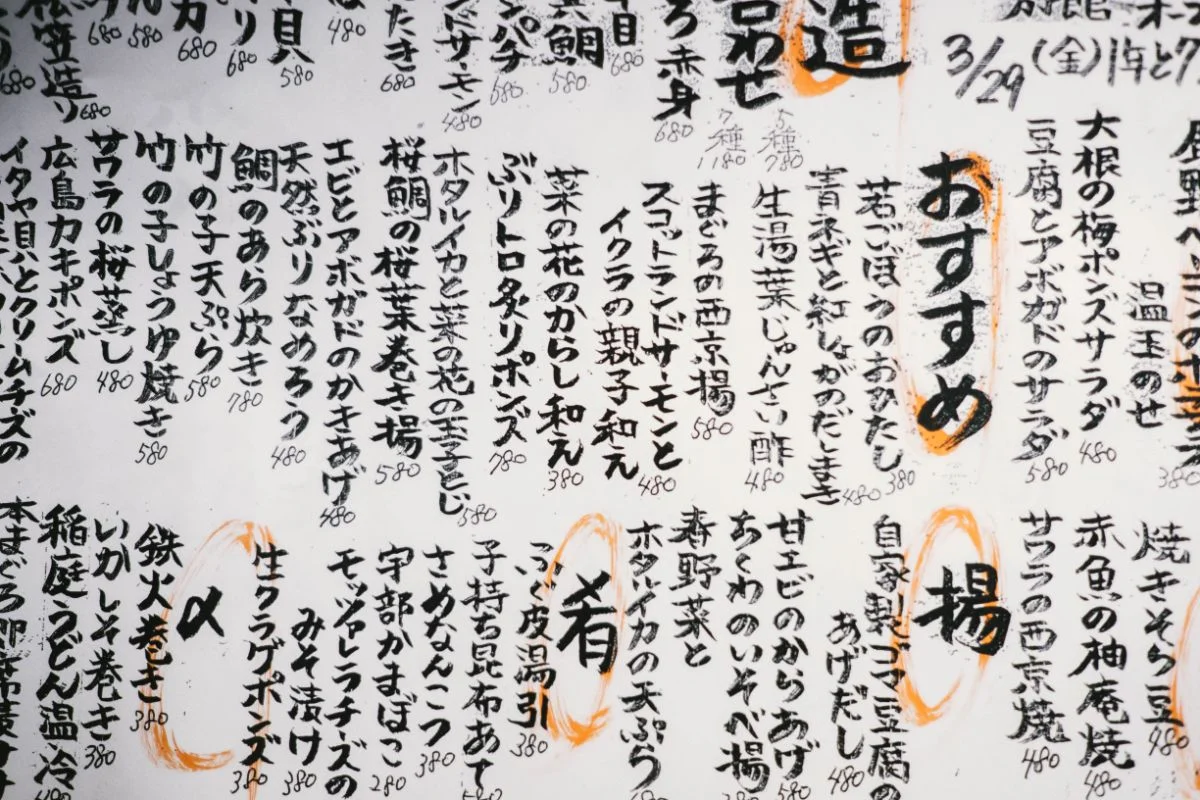 3/29(金)
造
合わせ
5種 780
7種 1180
赤身 680
真鯛 580
たたき 680
貝 580
松笠造り 680
温玉のせ
大根の梅ポンズサラダ 480
豆腐とアボガドのサラダ 580
おすすめ
若ごぼうのおひたし 380
青ネギと紅しょがのだしまき 480
生湯葉じゅんさい酢 480
まぐろの西京揚 580
スコットランドサーモンと
イクラの親子和え 480
菜の花のからし和え 380
ぶりトロ炙りポンズ 780
ホタルイカと菜の花の玉子とじ 580
桜鯛の桜葉巻き揚 580
エビとアボガドのかきあげ 480
天然ぶりなめろう 480
鯛のあら炊き 780
竹の子天ぷら 580
竹の子しょうゆ焼き 580
サワラの桜蒸し 480
広島カキポンズ 680
イタヤ貝とクリームチーズの
焼きそら豆 480
赤魚の柚庵焼 480
サワラの西京焼 480
揚
自家製ゴマ豆腐の
あげだし 480
甘エビのからあげ 580
ちくわのいそべ揚 380
春野菜と
ホタルイカの天ぷら
肴
ふぐ皮湯引 380
子持ち昆布あて 580
さめなんこつ 380
宇部かまぼこ 280
モッツァレラチーズの
みそ漬け 380
生クラゲポンズ 380
〆
鉄火巻き 380
いかしそ巻き 380
稲庭うどん温冷 480